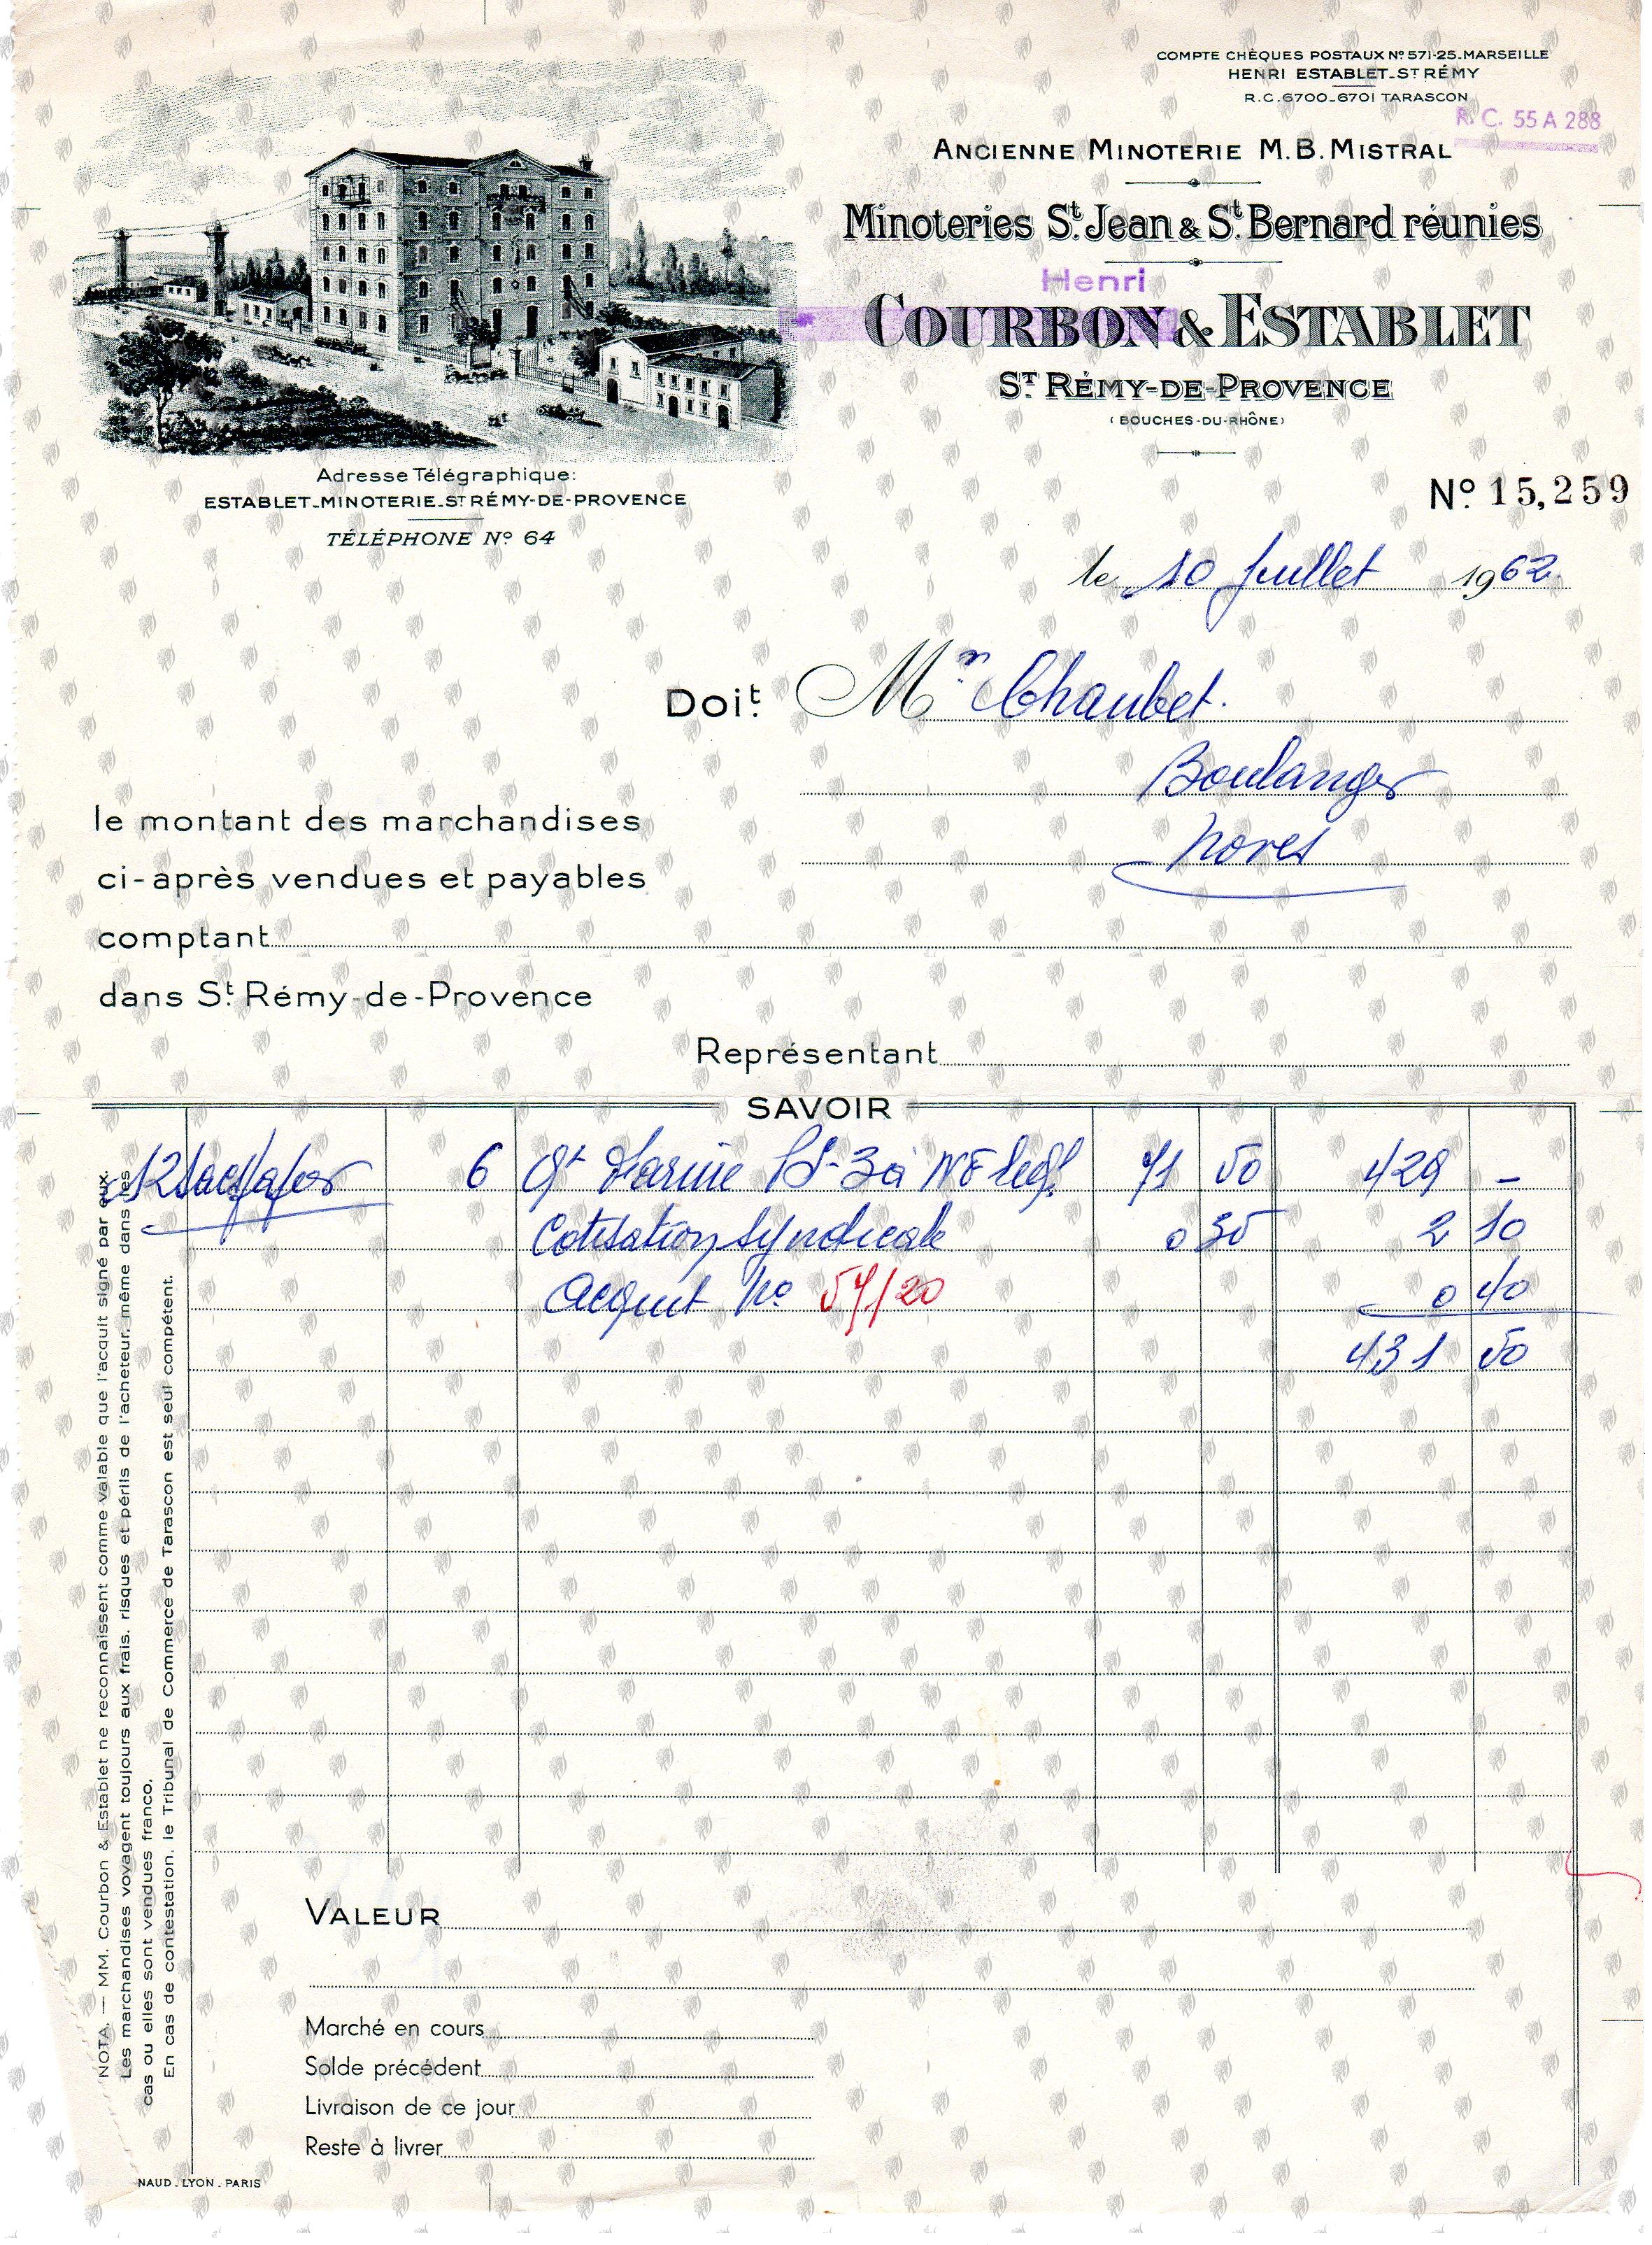 COMPTE CHÈQUES POSTAUX Nº 571-25. MARSEILLE
HENRI ESTABLET_ST RÉMY
R.C. 6700_6701 TARASCON
R. C. 55 A 288
ANCIENNE MINOTERIE M.B. MISTRAL
Minoteries St. Jean & St. Bernard réunies
Henri
COURBON & ESTABLET
ST RÉMY-DE-PROVENCE
(BOUCHES-DU-RHÔNE)
Adresse Télégraphique:
ESTABLET_MINOTERIE_ST RÉMY-DE-PROVENCE
TÉLÉPHONE Nº 64
Nº 15,259
le 10 Juillet 1962.
Doit. Mr Chaubet.
Boulanger
Noves
le montant des marchandises
ci-après vendues et payables
comptant
dans St. Rémy-de-Provence
Représentant
SAVOIR
12 sacs papier 6 Qt Farine 71 50 429 –
Cotisation syndicale 0 35 2 10
Acquit No 57/20 0 40
431 50
NOTA. — MM. Courbon & Establet ne reconnaissent comme valable que l'acquit signé par eux.
Les marchandises voyagent toujours aux frais, risques et périls de l'acheteur, même dans les
cas ou elles sont vendues franco.
En cas de contestation, le Tribunal de Commerce de Tarascon est seul compétent.
VALEUR
Marché en cours
Solde précédent
Livraison de ce jour
Reste à livrer
NAUD_LYON_PARIS